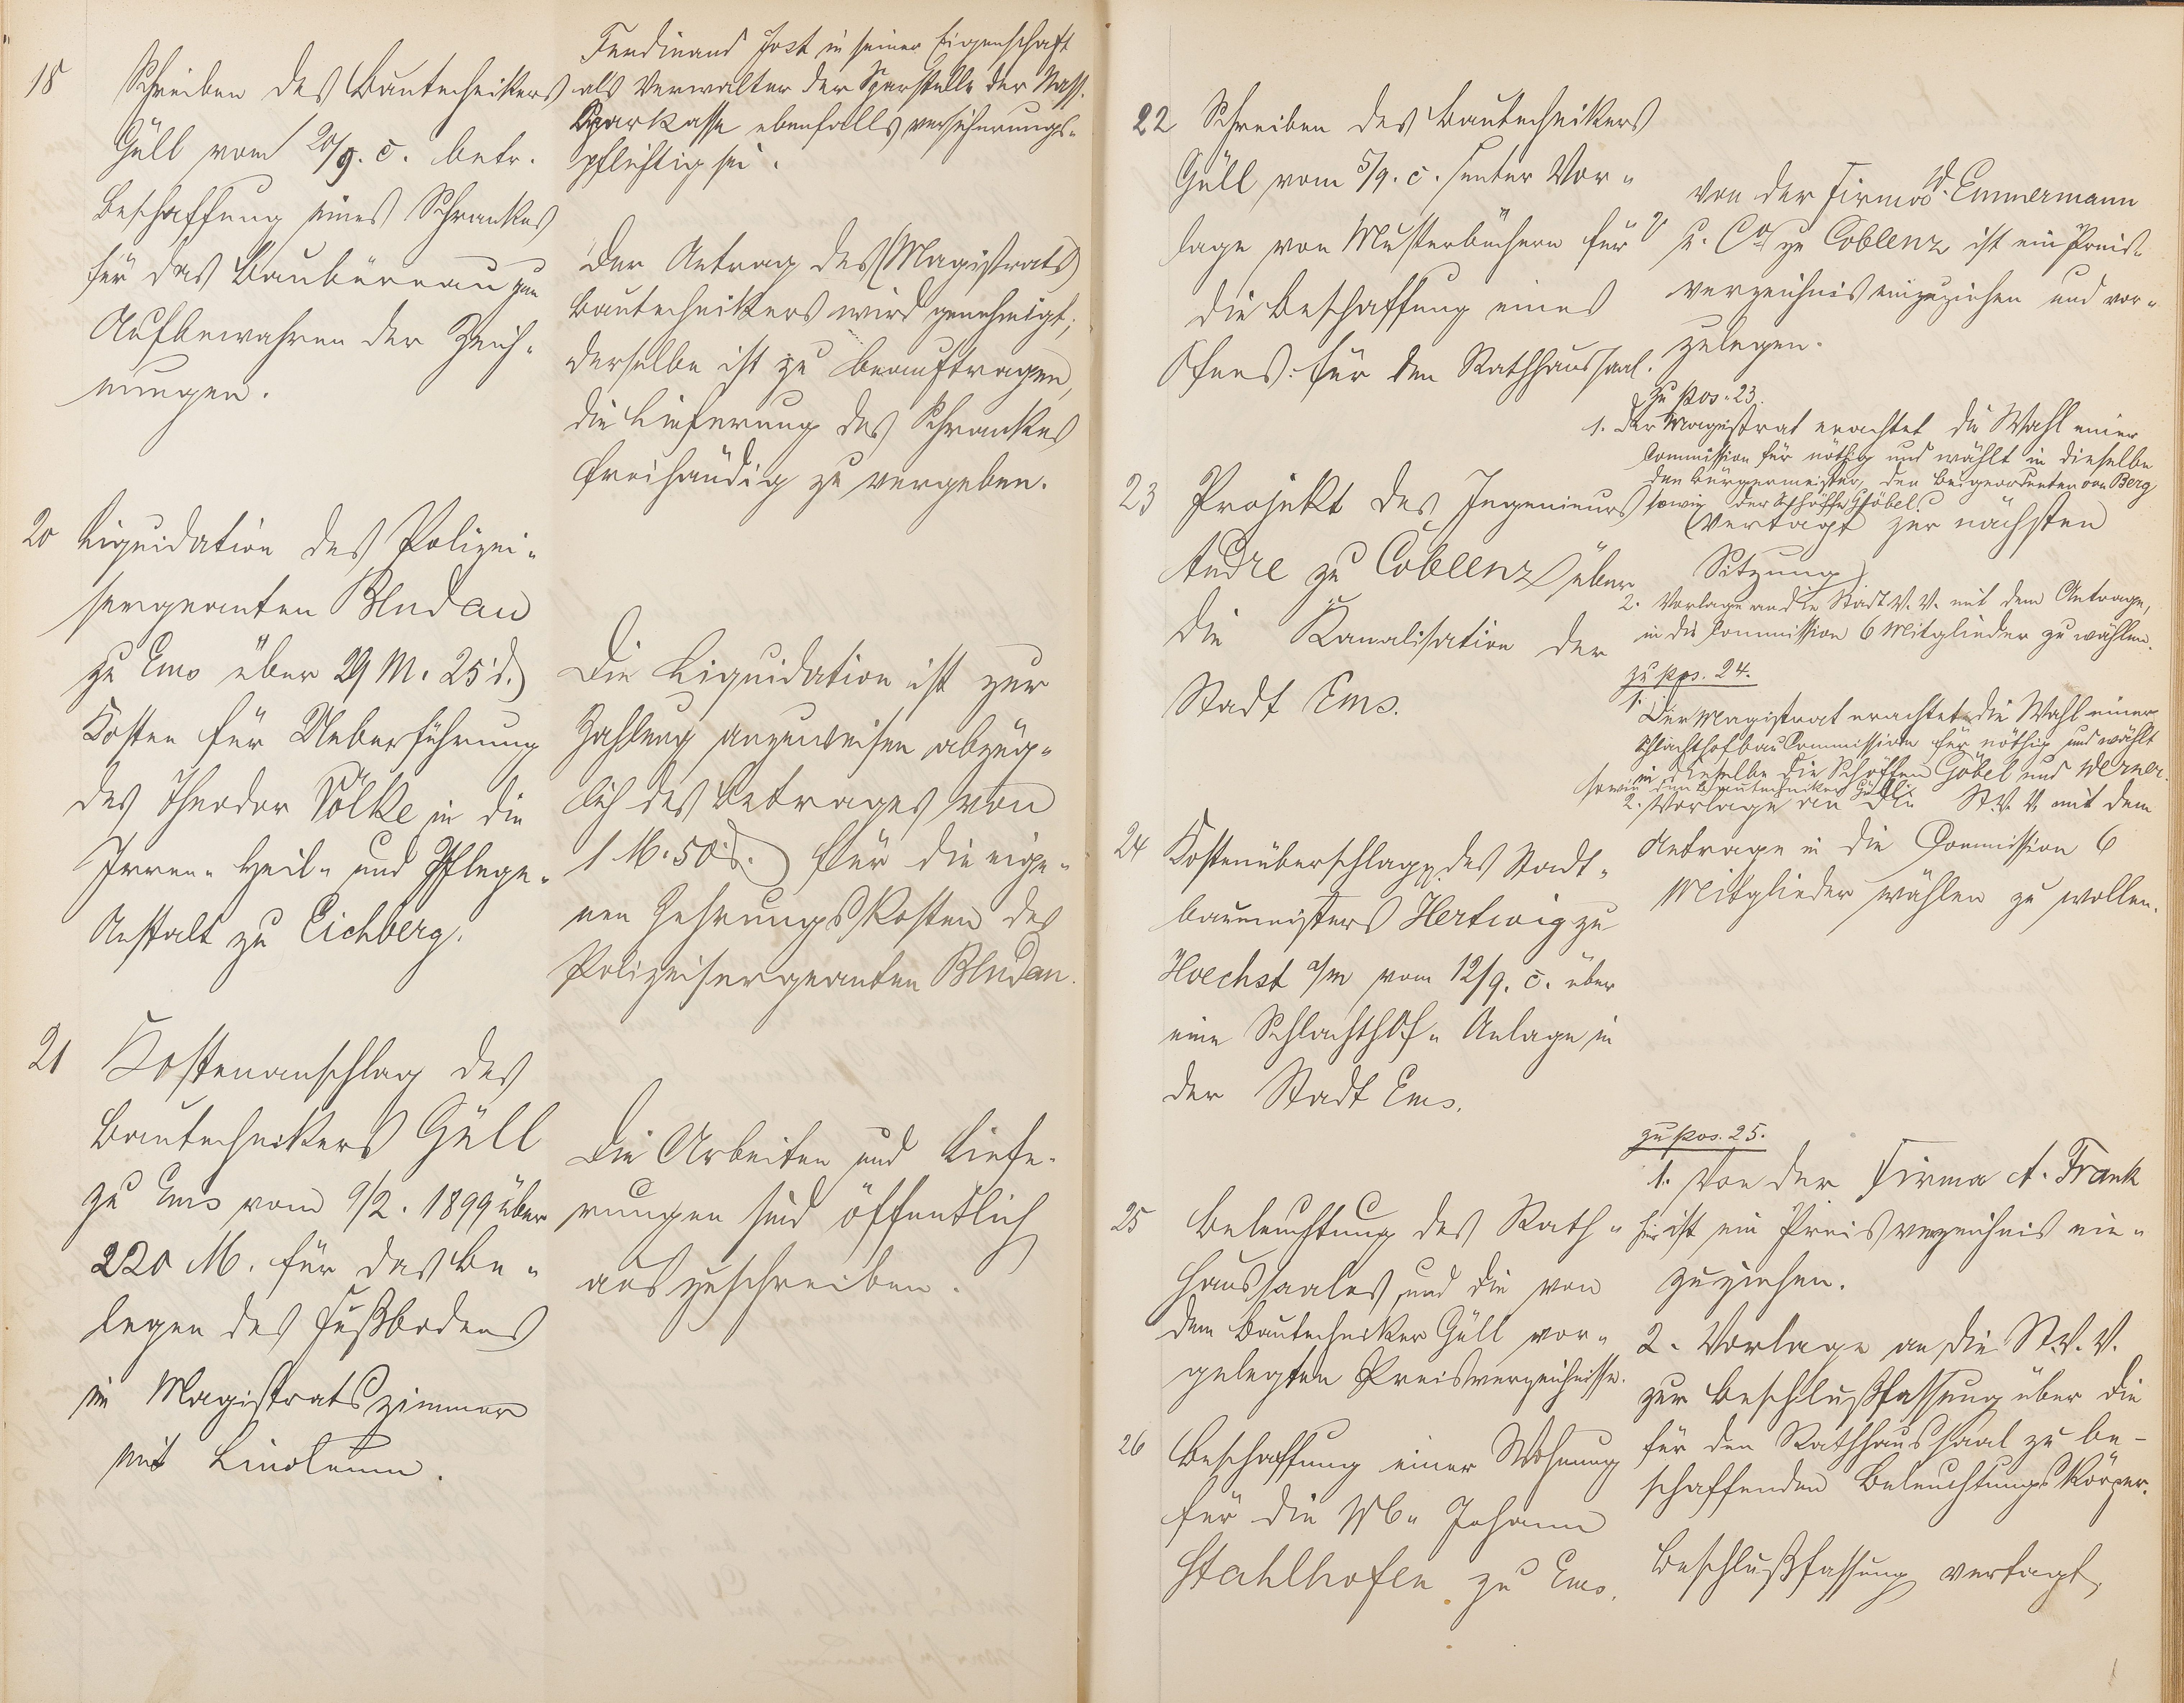 18
Schreiben des Bautechnikers
Güll vom 20/9. c. betr.
Beschaffung eines Schrankes
für das Baubüreau zum
Aufbewahren der Zeich-
nungen.
Ferdinand Jost in seiner Eigenschaft
als Verwalter der Sparstelle der Nass.
Sparkasse ebenfalls versicherungs-
pflichtig sei.
Der Antrag des (Magistrats)
Bautechnikers wird genehmigt;
derselbe ist zu beauftragen,
die Lieferung des Schrankes
freihändig zu vergeben.
20 Liquidation des Polizei-
sergeanten Bludau
zu Ems über 29 M. 25 d.
Kosten für Ueberführung
des Theodor Völke in die
Irren- Heil- und Pflege-
Anstalt zu Eichberg.
Die Liquidation ist zur
Zahlung anzuweisen abzüg-
lich des Betrages von
1 M. 50 d. für die eige-
nen Zehrungskosten des
Polizeisergeanten Bludau.
21 Kostenanschlag des
Bautechnikers Güll
zu Ems vom 9/2. 1899 über
220 M. für das Be-
legen des Fußbodens
im Magistratszimmer
mit Linoleum.
Die Arbeiten und Liefe-
rungen sind öffentlich
auszuschreiben.
22 Schreiben des Bautechnikers
Güll vom 5/9. c. unter Vor-
lage von Musterbüchern für
die Beschaffung eines
Ofens für den Rathhaussaal.
Von der Firma d. Emmermann
u. Co zu Coblenz ist ein Preis-
verzeichnis einzuziehen und vor-
zulegen.
zu pos. 23.
1. Der Magistrat erachtet die Wahl einer
Commission für nöthig und wählt in dieselbe
den Bürgermeister, den Beigeordneten von Berg
sowie der Schöffe Göbel
23 Projekt des Ingenieurs
André zu Coblenz über
die Kanalisation der
Stadt Ems.
(Vertagt zur nächsten
Sitzung)
2. Vorlage an die Stadt V. V. mit dem Antrage,
in die Commission 6 Mitglieder zu wählen.
zu pos. 24.
1. Der Magistrat erachtet die Wahl einer
Schlachthofbau Commission für nöthig und wählt
in dieselbe die Schöffen Göbel und Werner
sowie den Bautechniker Güll.
2. Vorlage an die St. V. V. mit dem
Antrage in die Commission 6
Mitglieder wählen zu wollen.
24 Kostenüberschlag des Stadt-
baumeisters Hertwig zu
Hoechst a/m vom 12/9. c. über
eine Schlachthof- Anlage in
der Stadt Ems.
zu pos. 25.
1. Von der Firma A. Frank
hier ist ein Preisverzeichnis ein-
zuziehen.
2. Vorlage an die St. V. V.
zur Beschlußfassung über die
für den Rathhaussaal zu be-
schaffenden Beleuchtungskörper.
25 Beleuchtung des Rath-
haussaales und die von
dem Bautechniker Güll vor-
gelegten Preisverzeichnisse.
26 Beschaffung einer Wohnung
für die Johann
Stahlhofen zu Ems.
Beschlußfassung vertagt.